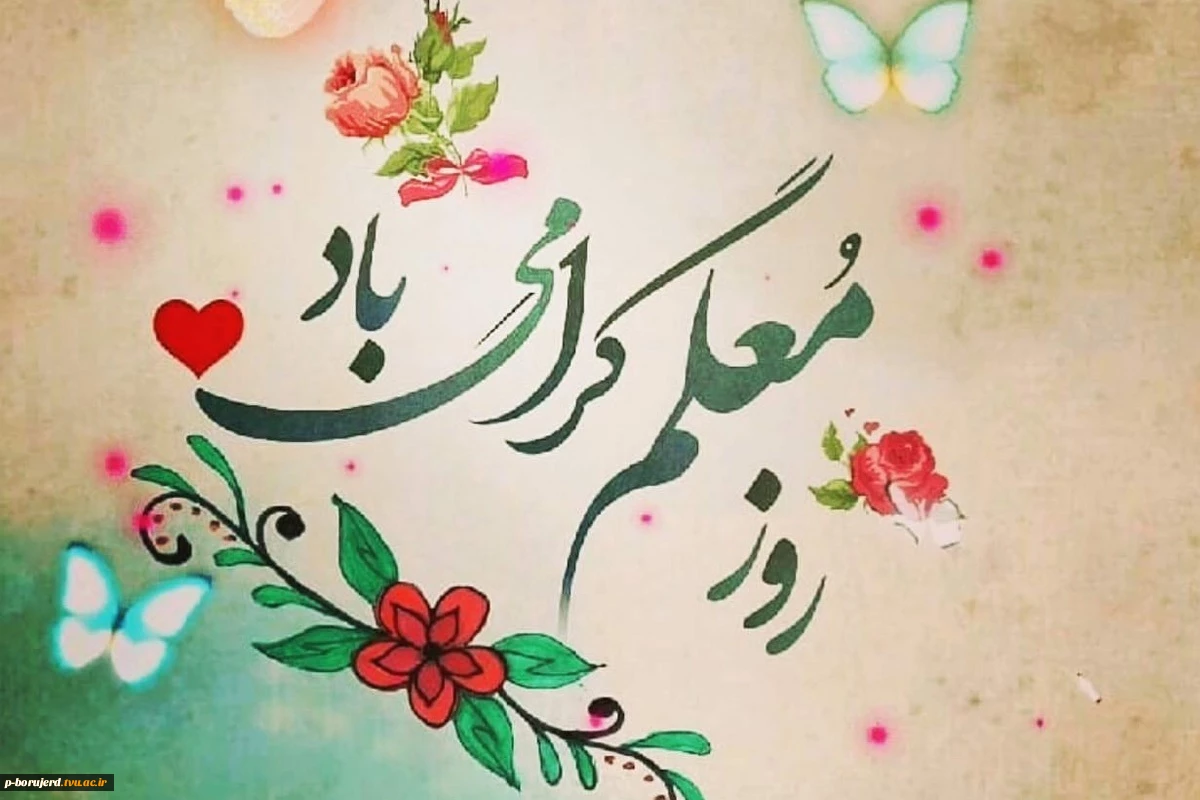 روز
مُعلم گرامی باد
p-borujerd.tvu.ac.ir